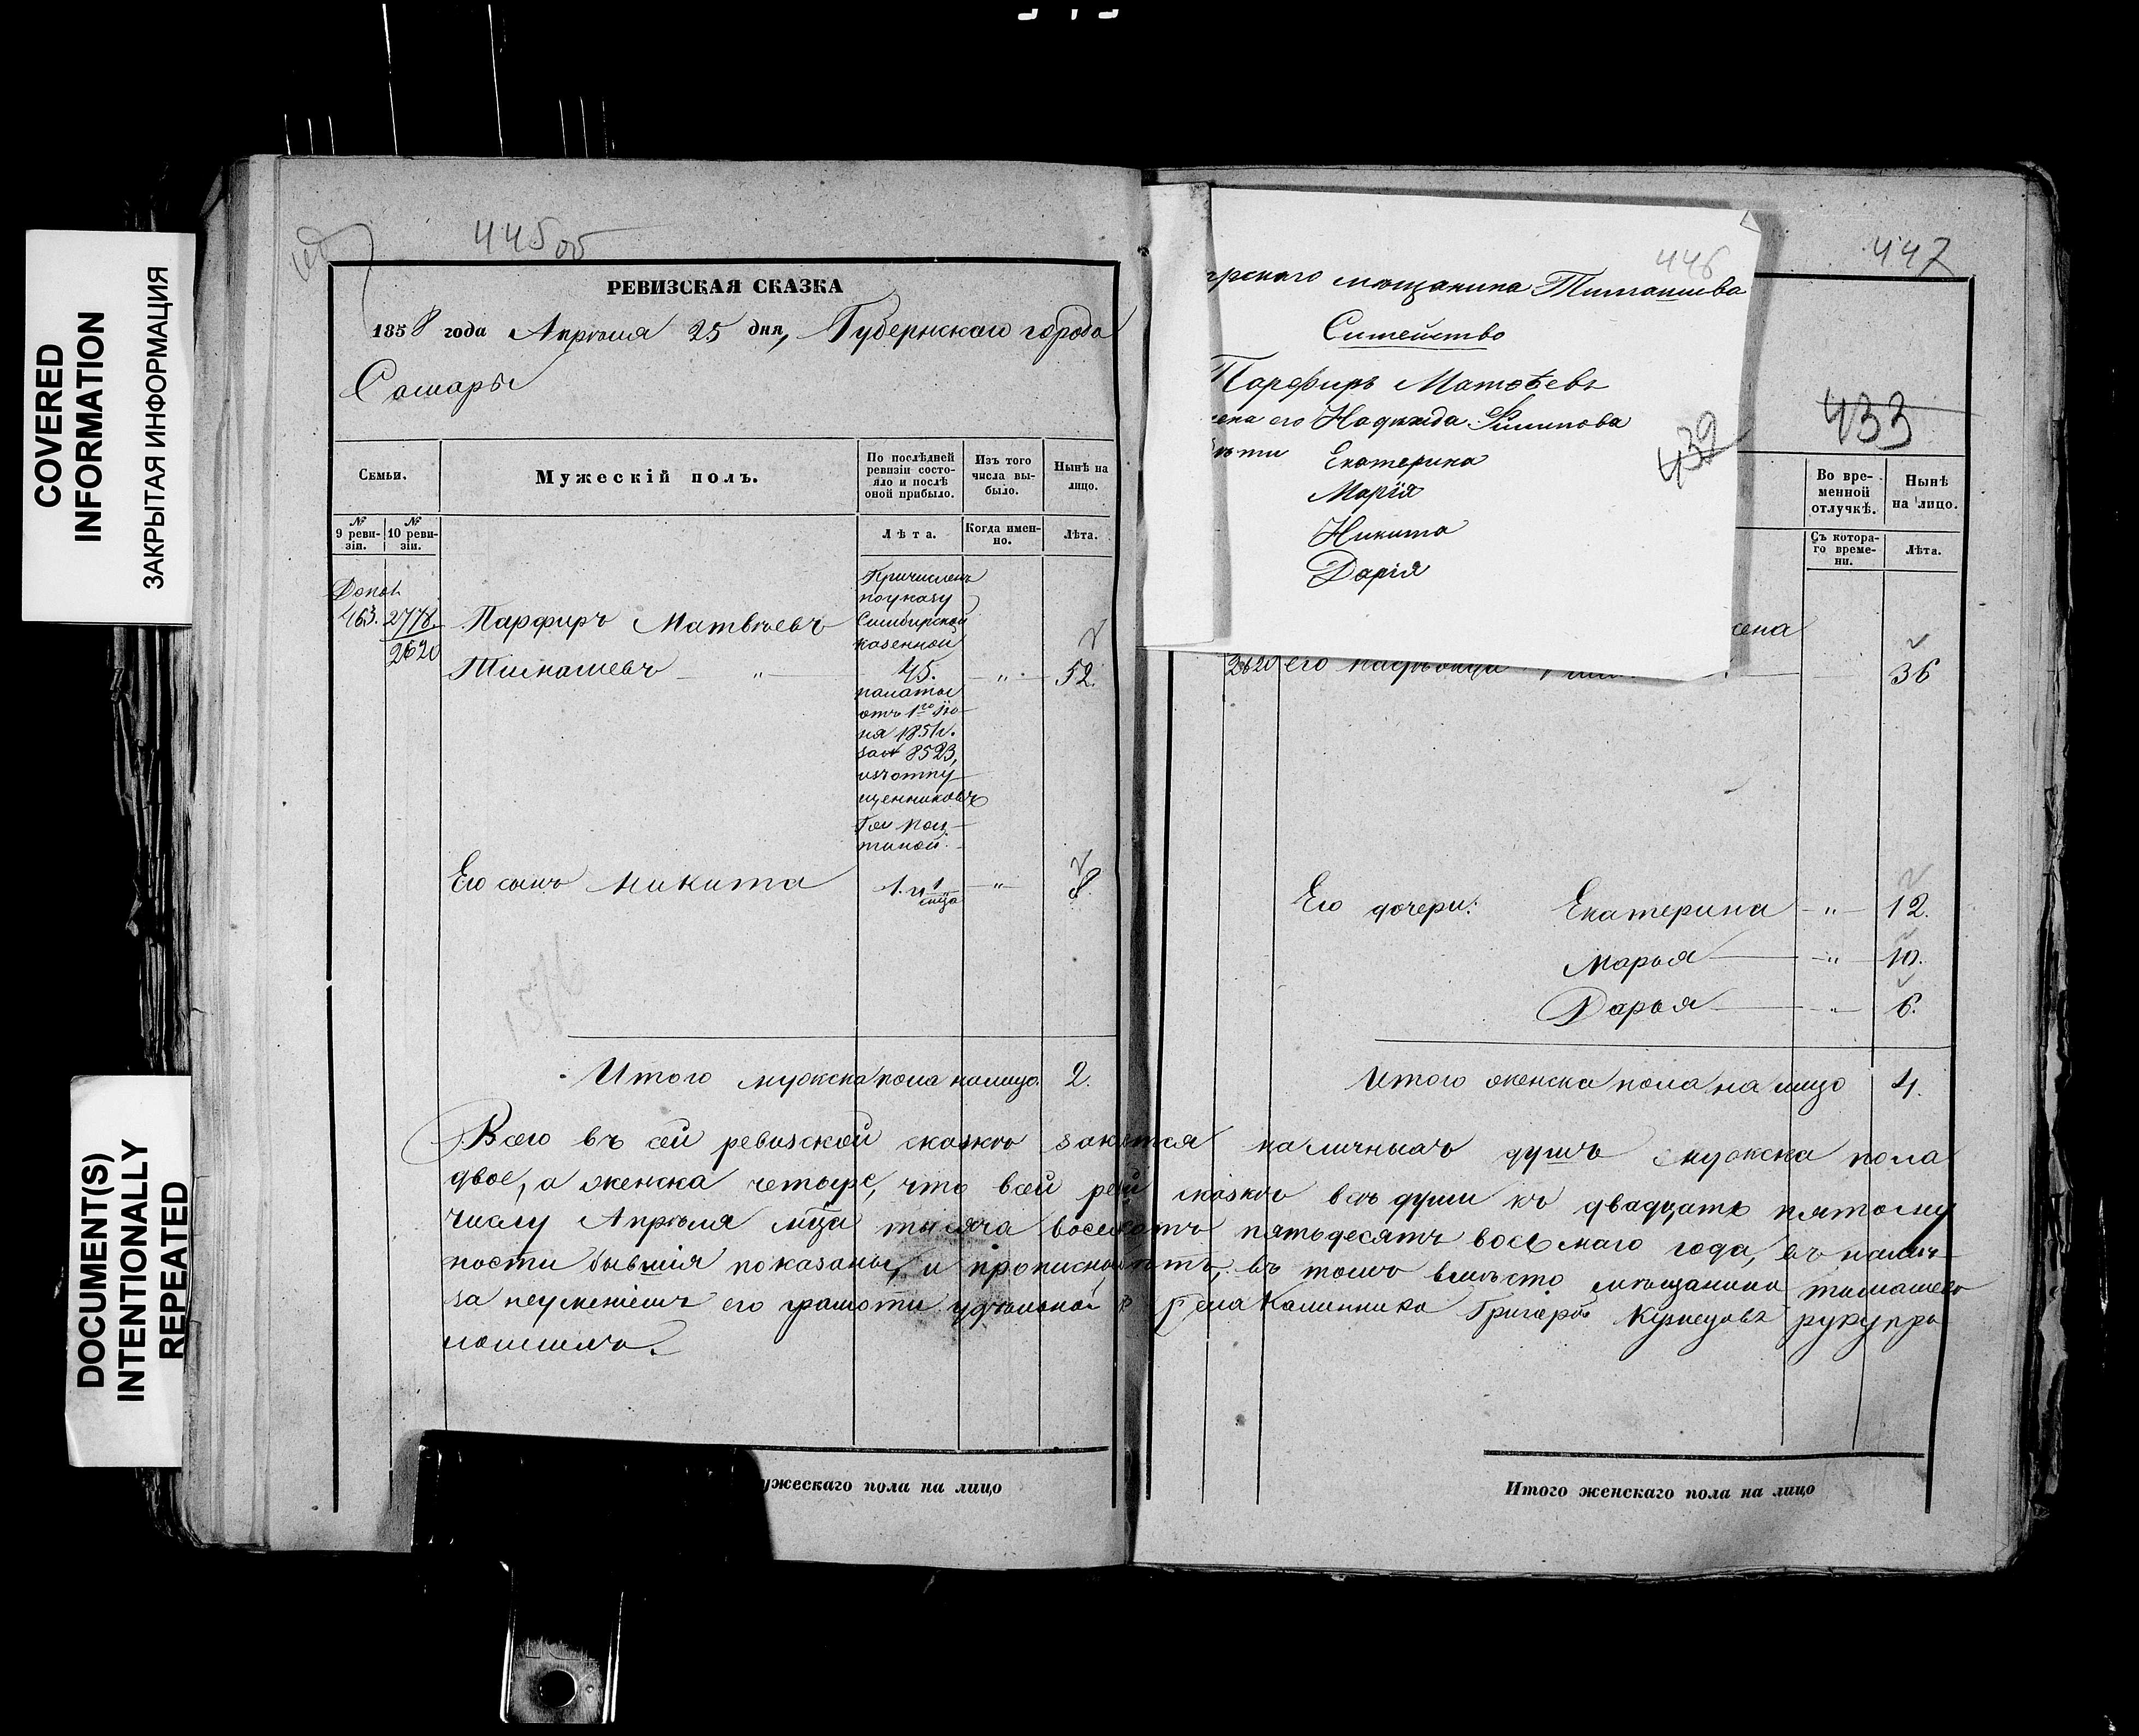 COVERED
INFORMATION
ЗАКРЫТАЯ ИНФОРМАЦИЯ
DOCUMENT(S)
INTENTIONALLY
REPEATED
445 об
РЕВИЗСКАЯ СКАЗКА
1858 года Апрѣля 25 дня, Губернскаго города
Самары
Семьи.
Мужескій полъ.
По послѣдней ревизіи состояло и послѣ оной прибыло.
Изъ того числа выбыло.
Нынѣ на лицо.
№ 9 ревизіи.
№ 10 ревизіи.
Лѣта.
Когда именно.
Лѣта.
463. 2778.
2620
Парфиръ Матвѣевъ
Тимашевъ — " — 45. — " — 52.
Причисленъ
по указу
Симбирской
казенной
палаты
отъ 1го Ію-
ня 1851 г.
за № 8523,
изъ отпу-
щенниковъ
Его сынъ Никита 1. и 1/ — " — 8.
Итого мужска пола на лицо 2.
446
мѣщанина Тимашева
Семейство
Парфиръ Матвѣевъ
его Надежда Филипова
Екатерина
Марія
Никита
Дарія
432
447
433
Во временной отлучкѣ.
Нынѣ на лицо.
Съ котораго времени.
Лѣта.
2620 его 36
Его дочери: Екатерина — " — 12.
Марья — " — 10.
Дарья — " — 6.
Итого женска пола на лицо 4.
Всего въ сей ревизской сказкѣ наличныхъ душъ мужска пола
двое, а женска четыре, что въ сей сказкѣ всѣ души къ двадцать пятому
числу Апрѣля мца тысяча восемсотъ пятьдесятъ восьмаго года, въ налич-
ности бывшія показаны, и прописной нѣтъ, въ томъ вмѣсто мѣщанина Тимашева
за неумѣніемъ его грамоти удѣльной Калинника Григорьевъ Кузнецовъ руку при
ложилъ.
ужескаго пола на лицо
Итого женскаго пола на лицо